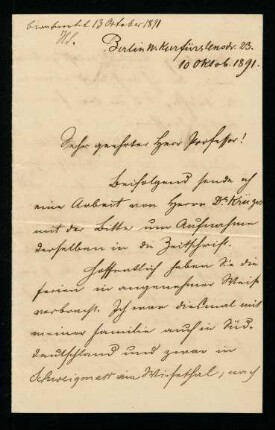 beantwortet 13 October 1891
Berlin W. Kurfürstenstr. 23.
10 Oktob. 1891.
Sehr geehrter Herr Professor!
Beifolgend sende ich
eine Arbeit von Herrn Dr Krüger
mit der Bitte um Aufnahme
derselben in die Zeitschrift.
Hoffentlich haben Sie die
Ferien in angenehmer Weise
verbracht. Ich war diesmal mit
meiner Familie auch in Süd-
deutschland und zwar in
Schweigmatt im Wiesethal, nach